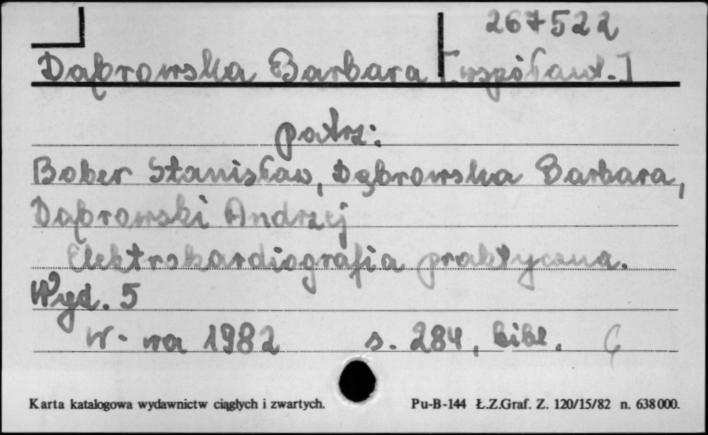 267522
Dąbrowska Barbara [współaut.]
patrz:
Bober Stanisław, Dąbrowska Barbara,
Dąbrowski Andrzej
Elektrokardiografia praktyczna.
Wyd. 5
W-wa 1982 s. 284, bibl.
Karta katalogowa wydawnictw ciągłych i zwartych. Pu-B-144 Ł.Z.Graf. Z. 120/15/82 n. 638000.